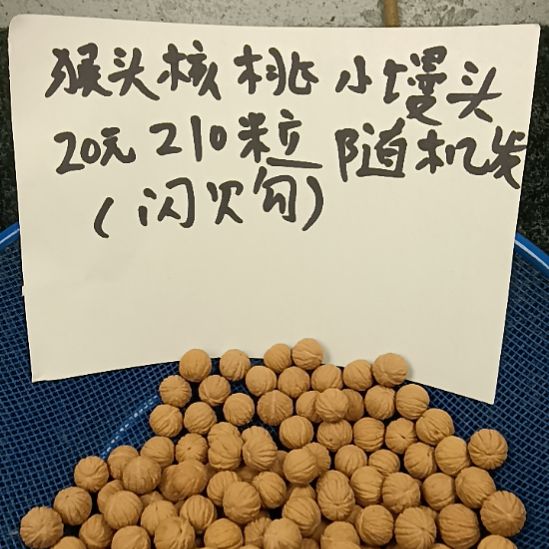 猴头核桃小馒头
20元210粒随机发
(闪欠勾)